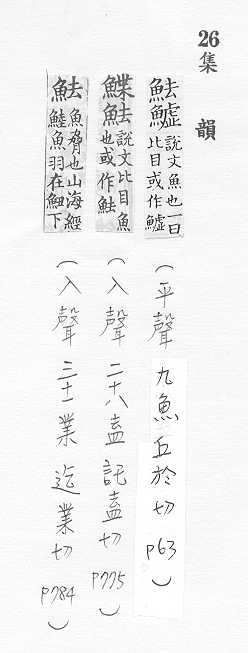 26
集韻
魼鱋 說文魚也一曰比目或作鱋 (平聲 九魚 丘於切 P63)
鰈魼 說文比目魚也或作魼 (入聲 二十八盍 託盍切 P775)
魼 魚脅也山海經鯥魚羽在魼下 (入聲 業 迄業切 P784)